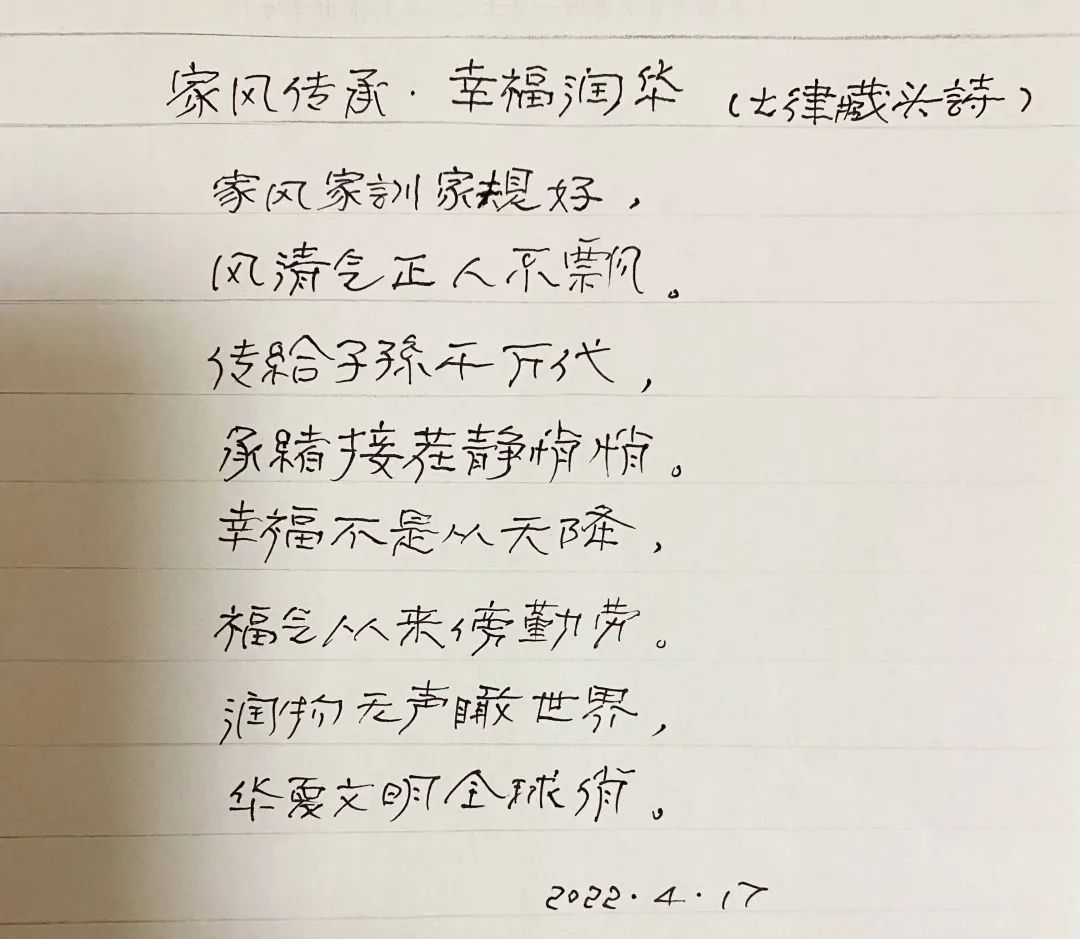 家风传承·幸福润华（七律藏头詩）
家风家訓家規好，
风清气正人不飘。
传給子孫千万代，
承緒接茬静悄悄。
幸福不是从天降，
福气从来傍勤劳。
润物无声瞰世界，
华夏文明全球俏。
2022.4.17